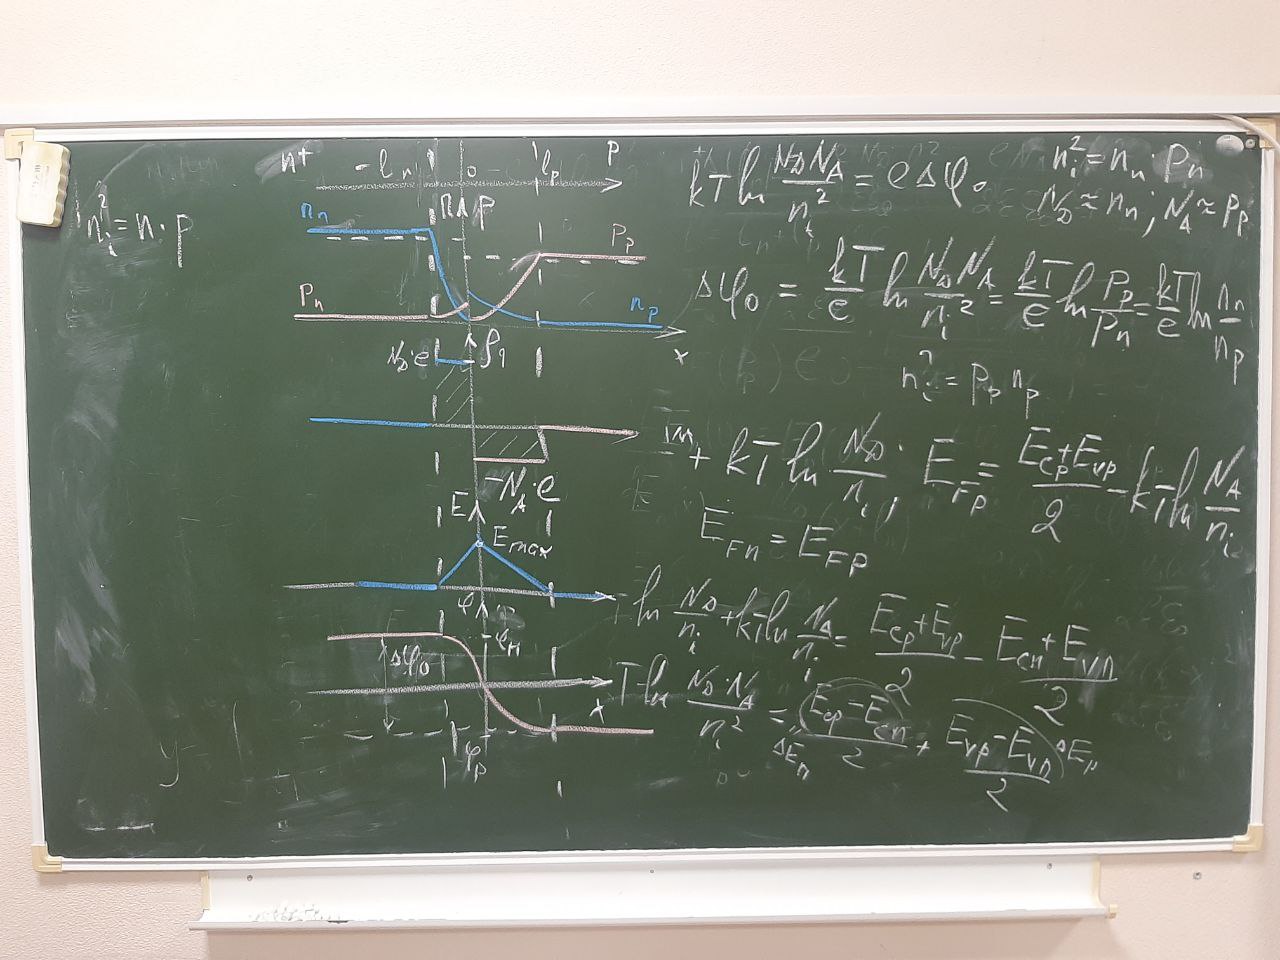 n⁺ -lₙ 0 lₚ P
nᵢ² = n · p
nₙ n p Pₚ
Pₙ nₚ x
N_D·e ρq
-N_A·e
E Eₘₐₓ
φ
Δφ₀ φₙ
x
φₚ
y
kT ln N_D N_A / nᵢ² = eΔφ₀
nᵢ² = nₙ Pₙ
N_D ≈ nₙ; N_A ≈ Pₚ
Δφ₀ = kT/e ln N_D N_A / nᵢ² = kT/e ln Pₚ/Pₙ = kT/e ln nₙ/nₚ
nᵢ² = Pₚ nₚ
+ kT ln N_D/nᵢ, E_Fp = (E_cp + E_vp)/2 - kT ln N_A/nᵢ
E_Fn = E_Fp
ln N_D/nᵢ + kT ln N_A/nᵢ = (E_cp + E_vp)/2 - (E_cn + E_vn)/2
T ln N_D·N_A / nᵢ² = (E_cp - E_cn)/2 + (E_vp - E_vn)/2
ΔEₙ ΔEₚ